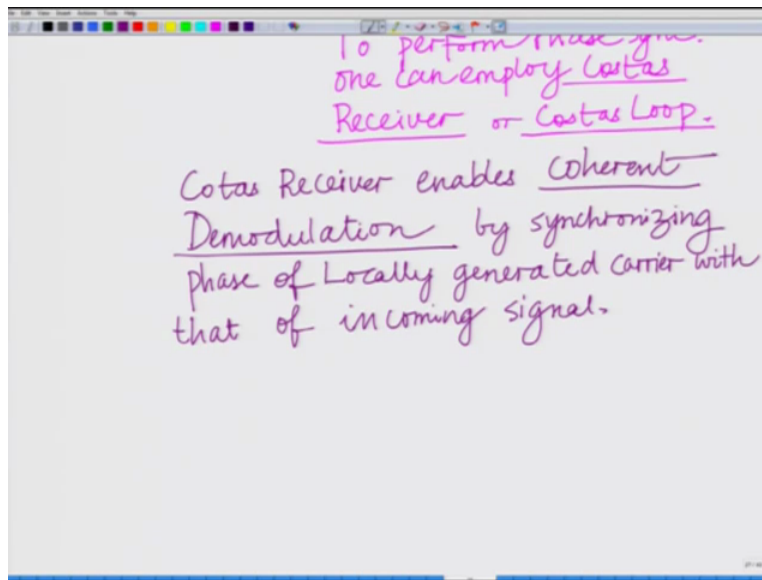 To perform Phase Sync.
one can employ Costas
Receiver or Costas Loop.
Cotas Receiver enables Coherent
Demodulation by synchronizing
phase of Locally generated carrier with
that of incoming signal.